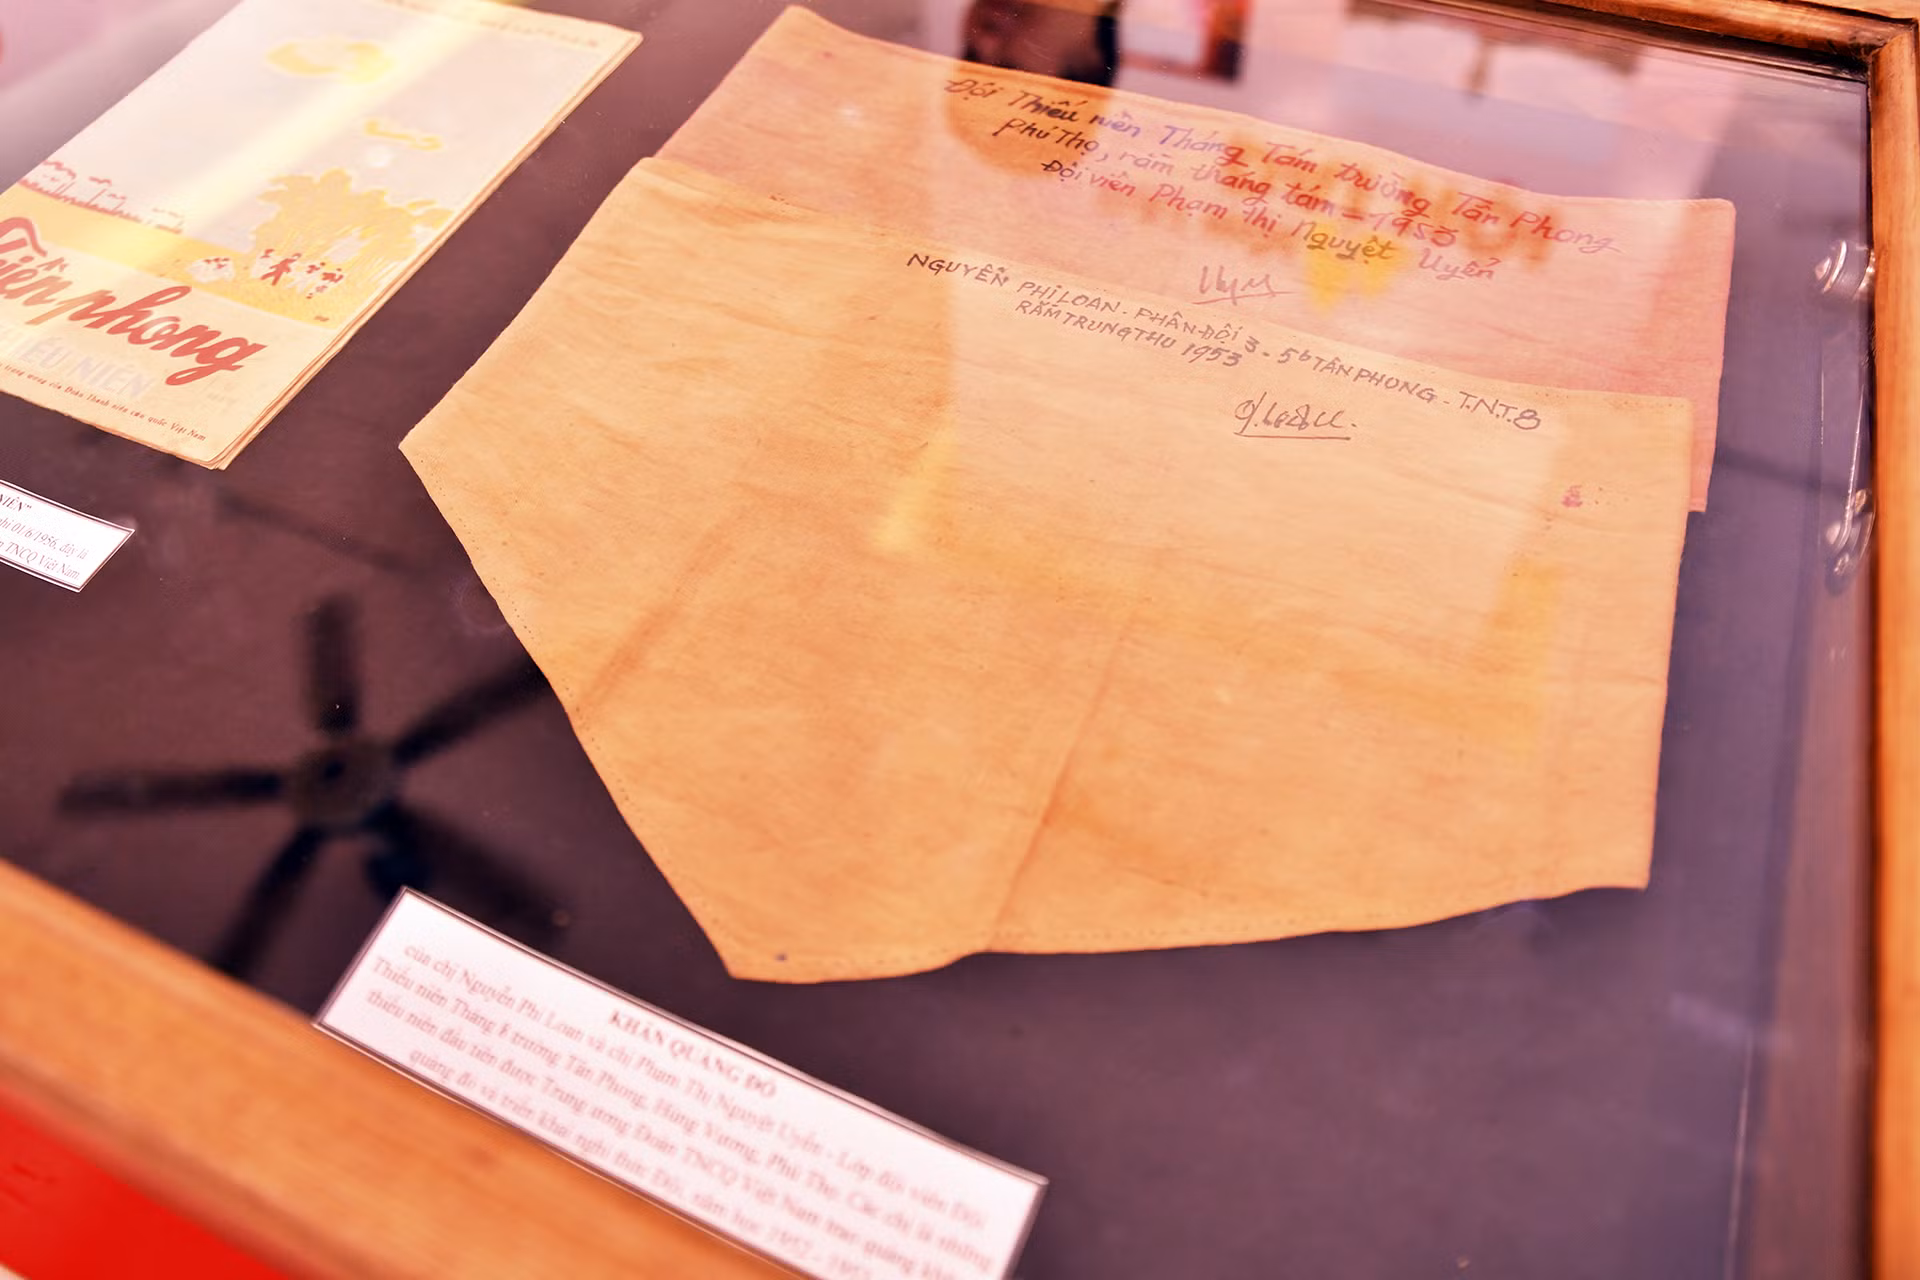 Tiền phong
THIẾU NIÊN
của Đoàn Thanh niên cứu quốc Việt Nam
NIÊN"
01/6/1956, đây là
TNCQ Việt Nam
Đội Thiếu niên Tháng Tám trường Tân Phong
Phú Thọ, rằm tháng tám - 1953
Đội viên Phạm thị Nguyệt Uyển
NGUYỄN PHI LOAN - PHÂN ĐỘI 3 - 5b TÂN PHONG - T.N.T.8
RẰM TRUNG THU 1953
KHĂN QUÀNG ĐỎ
của chị Nguyễn Phi Loan và chị Phạm Thị Nguyệt Uyển - Lớp đội viên Đội
Thiếu niên Tháng 8 trường Tân Phong, Hùng Vương, Phú Thọ. Các chị là những
thiếu niên đầu tiên được Trung ương Đoàn TNCQ Việt Nam trao quàng khăn
quàng đỏ và triển khai nghi thức Đội, năm học 1952 - 1953